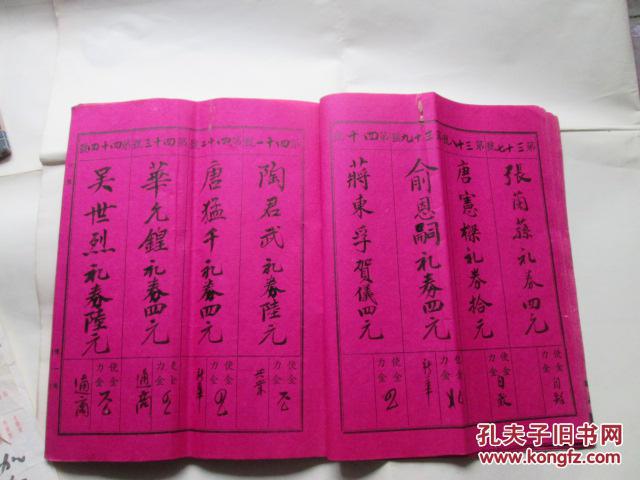 第三十七號
張蘭蓀礼券四元
使金
力金
第三十八號
唐憲樑礼券拾元
使金
力金
自
第三十九號
俞恩嗣礼券四元
使金
力金
第四十
蔣東孚賀儀四元
使金
力金
第四十一號
陶君武礼券陸元
使金
力金
第四十二號
唐猛千礼券四元
使金
力金
第四十三號
華允鍠礼券四元
使金
力金
通商
第四十四號
吴世烈礼券陸元
使金
力金
通商
孔夫子旧书网
www.kongfz.com